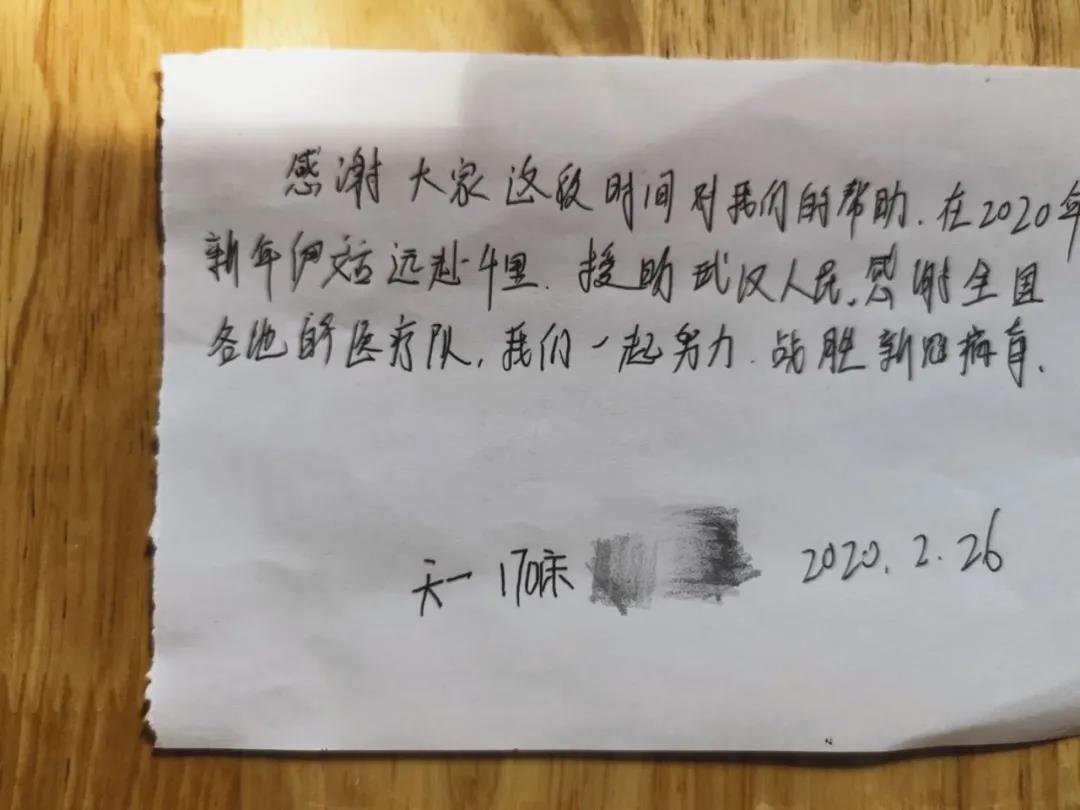 感谢大家这段时间对我们的帮助.在2020年
新年伊始远赴千里.援助武汉人民.感谢全国
各地的医疗队,我们一起努力.战胜新冠病毒.
天一 170床 2020.2.26